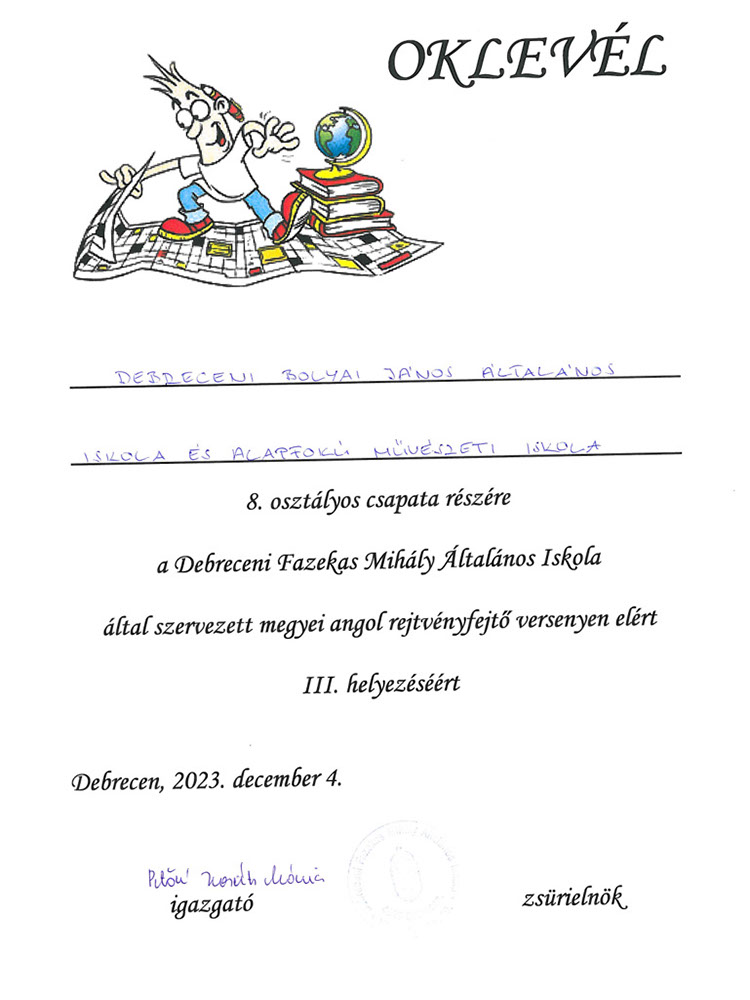 OKLEVÉL
DEBRECENI BOLYAI JÁNOS ÁLTALÁNOS
ISKOLA ÉS ALAPFOKÚ MŰVÉSZETI ISKOLA
8. osztályos csapata részére
a Debreceni Fazekas Mihály Általános Iskola
által szervezett megyei angol rejtvényfejtő versenyen elért
III. helyezéséért
Debrecen, 2023. december 4.
igazgató
zsürielnök